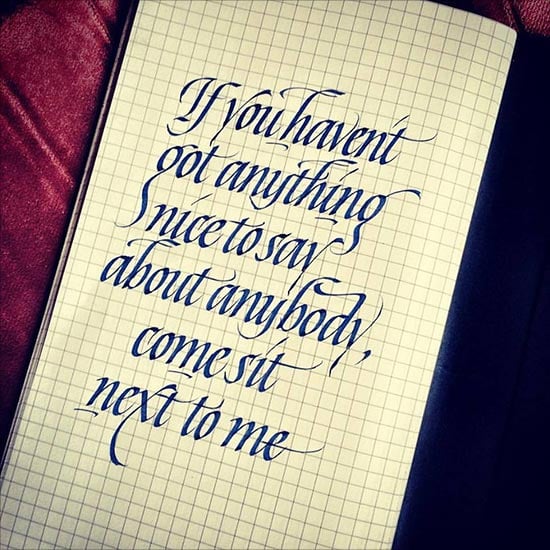 If you haven't
got anything
nice to say
about anybody,
come sit
next to me